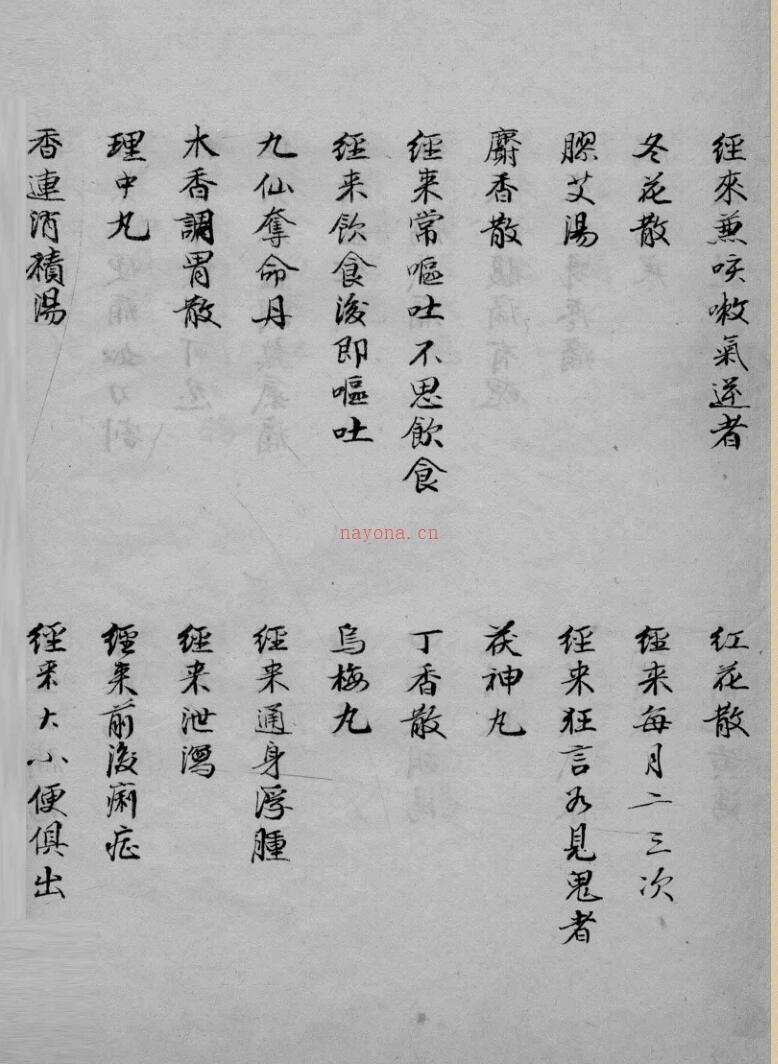 經來兼咳嗽氣逆者
紅花散
冬花散
經来每月二三次
膠艾湯
經来狂言若見鬼者
麝香散
茯神丸
經来常嘔吐不思飲食
丁香散
經来飲食後即嘔吐
烏梅丸
九仙奪命丹
經来通身浮腫
木香調胃散
經来泄瀉
理中丸
經来前後痢症
香連消積湯
經来大小便俱出
nayona.cn